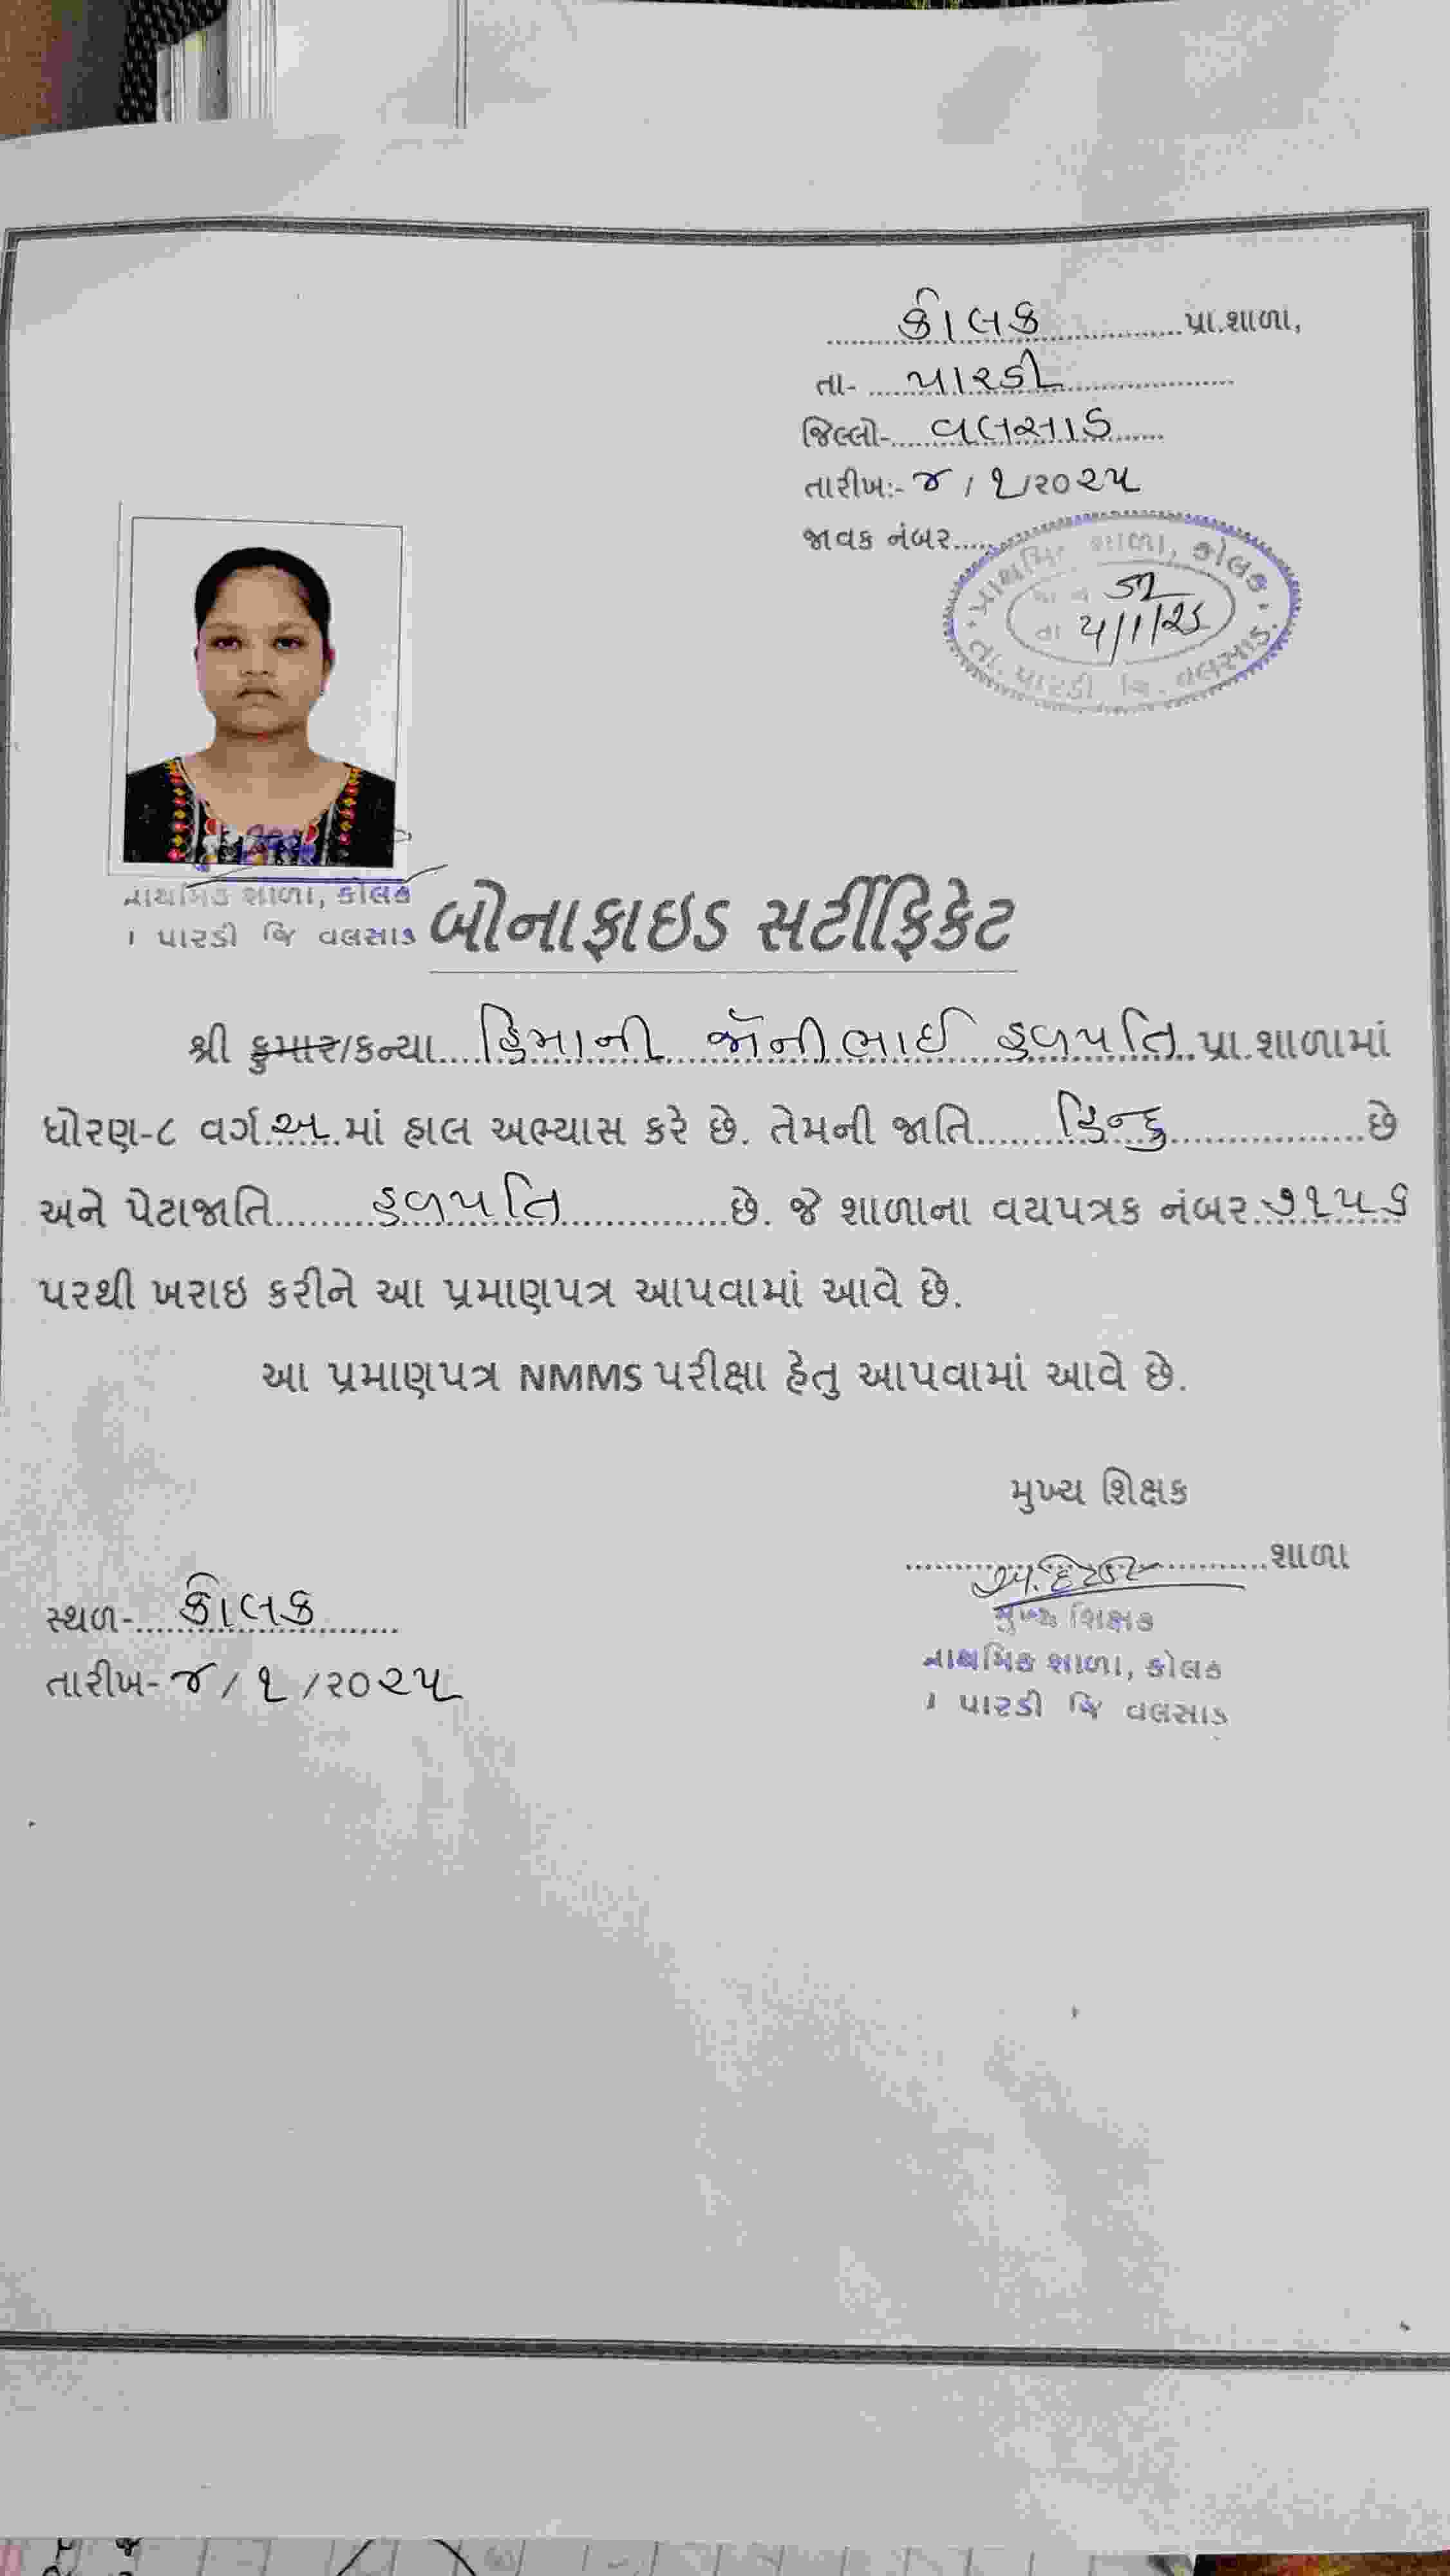 કોલક પ્રા.શાળા,
તા- પારડી
જિલ્લો- વલસાડ
તારીખ:- ૪ / ૧ /૨૦૨૫
જાવક નંબર
પ્રાથમિક શાળા, કોલક.
તા. પારડી જિ. વલસાડ.
પ્રાથમિક શાળા, કોલક
પારડી જિ વલસાડ
બોનાફાઇડ સર્ટીફિકેટ
શ્રી કુમાર/કન્યા હિમાની જૉનીભાઈ હળપતિ પ્રા.શાળામાં
ધોરણ-૮ વર્ગ અ માં હાલ અભ્યાસ કરે છે. તેમની જાતિ હિન્દુ છે
અને પેટાજાતિ હળપતિ છે. જે શાળાના વયપત્રક નંબર ૭૧૫૬
પરથી ખરાઇ કરીને આ પ્રમાણપત્ર આપવામાં આવે છે.
આ પ્રમાણપત્ર NMMS પરીક્ષા હેતુ આપવામાં આવે છે.
મુખ્ય શિક્ષક
શાળા
મુખ્ય શિક્ષક
પ્રાથમિક શાળા, કોલક
પારડી જિ વલસાડ
સ્થળ- કોલક
તારીખ- ૪ / ૧ /૨૦૨૫